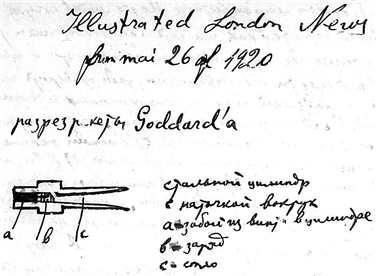 Illustrated London News
from mai 26 of 1920
разрез р-кеты Goddard'a
стальной цилиндр
с наточкой вокруг
a - забой из в цилиндре
a в c
в - заряд
c - сопло